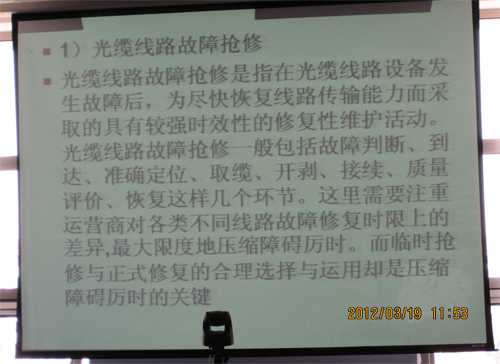 1）光缆线路故障抢修
光缆线路故障抢修是指在光缆线路设备发
生故障后，为尽快恢复线路传输能力而采
取的具有较强时效性的修复性维护活动。
光缆线路故障抢修一般包括故障判断、到
达、准确定位、取缆、开剥、接续、质量
评价、恢复这样几个环节。这里需要注重
运营商对各类不同线路故障修复时限上的
差异,最大限度地压缩障碍历时。而临时抢
修与正式修复的合理选择与运用却是压缩
障碍历时的关键
2012/03/19 11:53